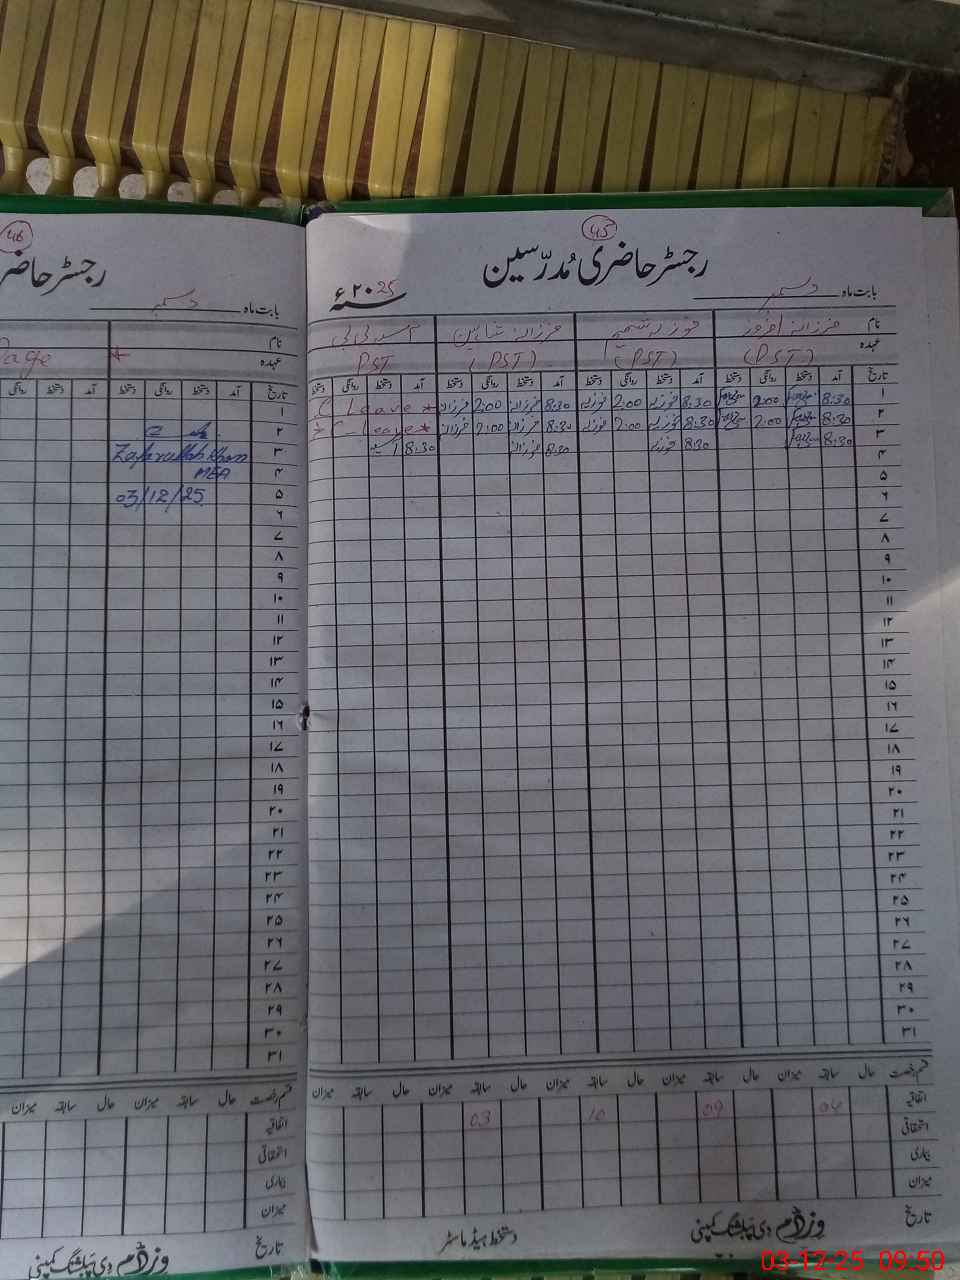 45
رجسٹر حاضری مُدرّسین
بابت ماہ دسمبر سنہ ۲۰25ء
نام فرزانہ افروز فوزیہ شمیم فرزانہ شاہین آسیہ بی بی
عہدہ (PST) (PST) (PST) PST
تاریخ آمد دستخط روانگی دستخط آمد دستخط روانگی دستخط آمد دستخط روانگی دستخط آمد دستخط روانگی دستخط
۱ 8:30 2:00 8:30 فوزیہ 2:00 فوزیہ 8:30 فرزانہ 2:00 فرزانہ C Leave *
۲ 8:30 2:00 8:30 فوزیہ 2:00 فوزیہ 8:30 فرزانہ 2:00 فرزانہ * C Leave *
۳ 8:30 8:30 فوزیہ 8:30 فرزانہ 8:30 آسیہ
۴
۵
۶
۷
۸
۹
۱۰
۱۱
۱۲
۱۳
۱۴
۱۵
۱۶
۱۷
۱۸
۱۹
۲۰
۲۱
۲۲
۲۳
۲۴
۲۵
۲۶
۲۷
۲۸
۲۹
۳۰
۳۱
قسم رخصت حال سابقہ میزان حال سابقہ میزان حال سابقہ میزان حال سابقہ میزان
اتفاقیہ 04 09 10 03
استحقاقی
بیماری
میزان
تاریخ وزڈم دی پبلشنگ کمپنی دستخط ہیڈ ماسٹر
46
رجسٹر حاضر
بابت ماہ دسمبر
نام
عہدہ * Page
تاریخ آمد دستخط روانگی دستخط آمد دستخط روانگی
۱
۲
۳ Zafarullah Khan
۴ MEA
۵ 03/12/25
۶
۷
۸
۹
۱۰
۱۱
۱۲
۱۳
۱۴
۱۵
۱۶
۱۷
۱۸
۱۹
۲۰
۲۱
۲۲
۲۳
۲۴
۲۵
۲۶
۲۷
۲۸
۲۹
۳۰
۳۱
قسم رخصت حال سابقہ میزان حال سابقہ میزان
اتفاقیہ
استحقاقی
بیماری
میزان
تاریخ وزڈم دی پبلشنگ کمپنی
03-12-25 09:50